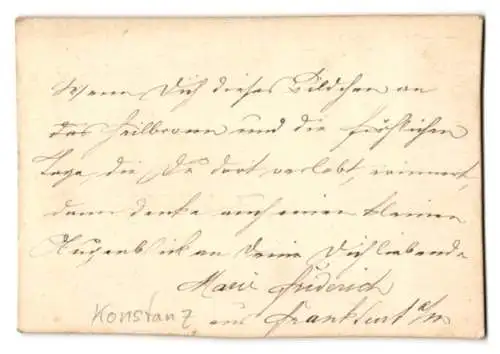 Wenn Dich dieses Bildchen an
das Heilbronn und die fröhlichen
Tage, die Du dort verlebt, erinnert,
dann denke auch einen kleinen
Augenblick an Deine Dich liebende
Marie Friderich
Konstanz aus Frankfurt a/m